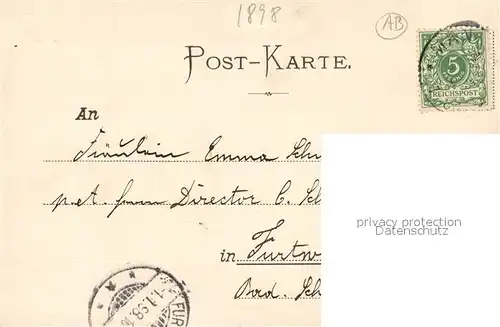 1898
AB
POST-KARTE.
5
REICHSPOST
An
Fräulein Emma Sch
pet. Herrn Director C. Sch
privacy protection
Datenschutz
in Furtw
Bad. Sch
1.1.98.
FUR